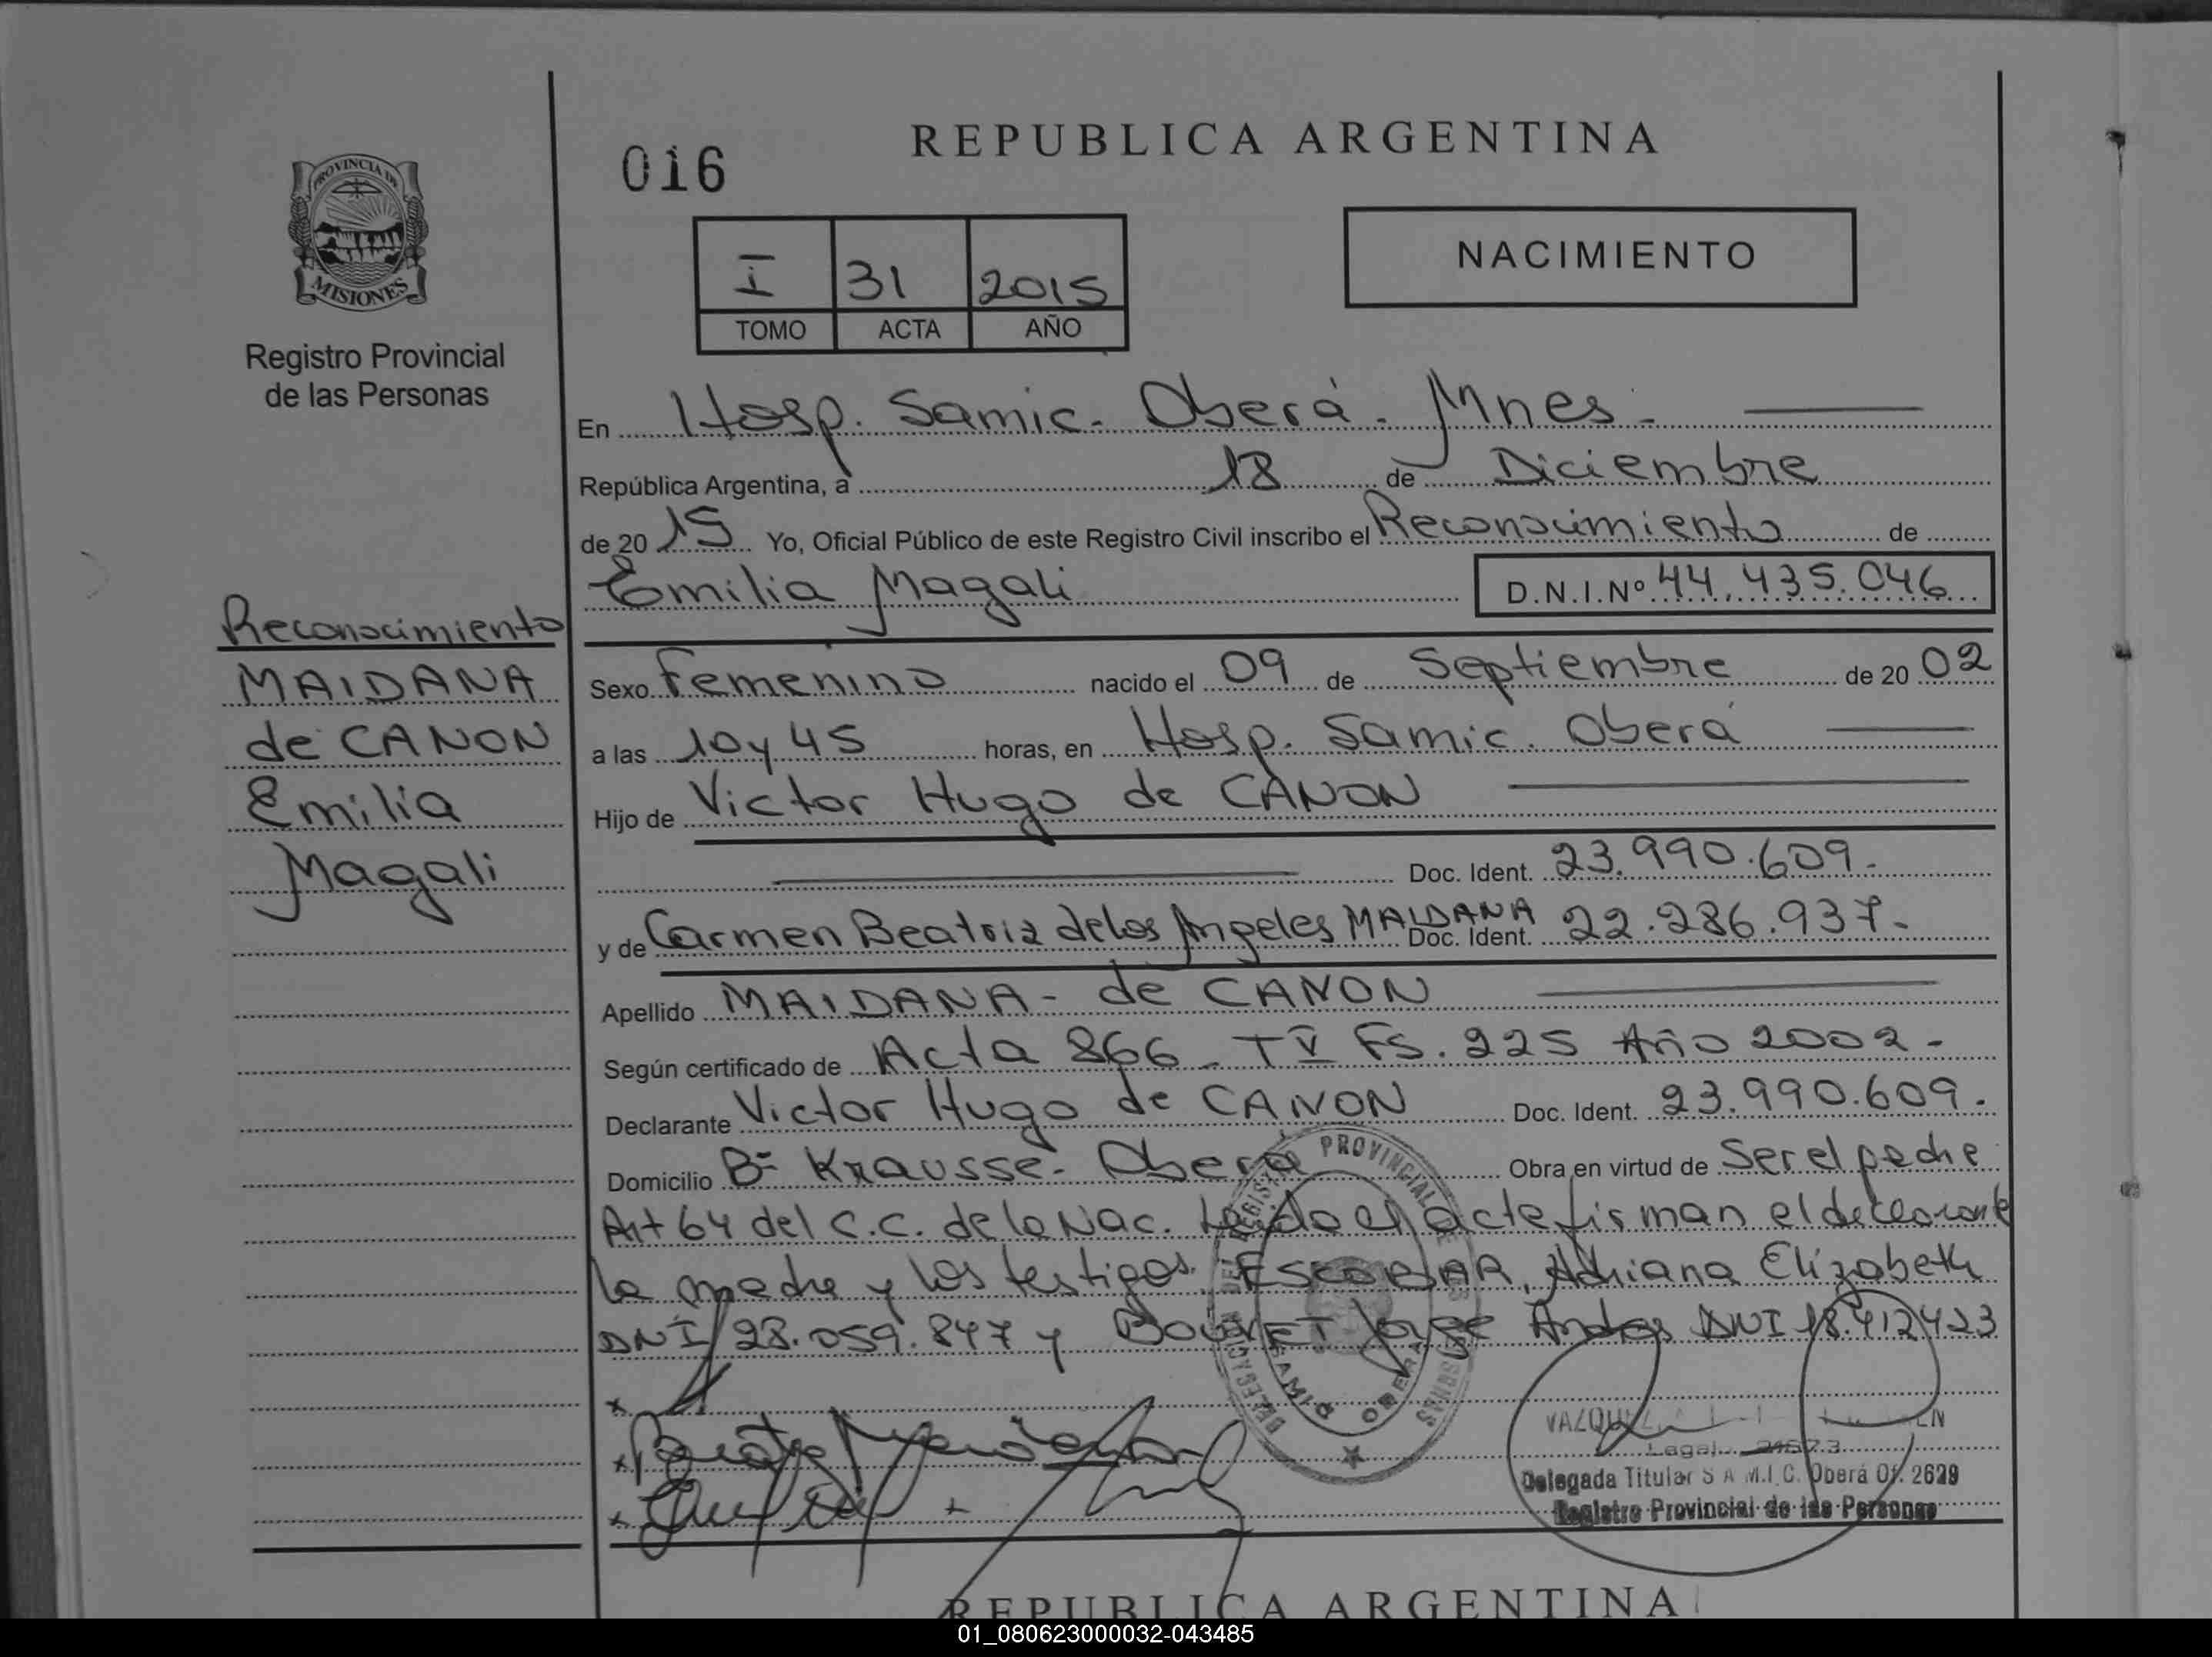 PROVINCIA DE
MISIONES
Registro Provincial
de las Personas
Reconocimiento
MAIDANA
de CANON
Emilia
Magali
016
REPUBLICA ARGENTINA
I 31 2015
TOMO ACTA AÑO
NACIMIENTO
En Hosp. Samic. Oberá. Mnes.
República Argentina, a 18 de Diciembre
de 20 15 Yo, Oficial Público de este Registro Civil inscribo el Reconocimiento de
Emilia Magali D.N.I.Nº 44.435.046
Sexo Femenino nacido el 09 de Septiembre de 20 02
a las 10 y 45 horas, en Hosp. Samic. Oberá
Hijo de Victor Hugo de CANON
Doc. Ident. 23.990.609.
y de Carmen Beatriz de los Angeles MAIDANA Doc. Ident. 22.286.937.
Apellido MAIDANA - de CANON
Según certificado de Acta 866 - T V Fs. 225 Año 2002 -
Declarante Victor Hugo de CANON Doc. Ident. 23.990.609.
Domicilio Bº Krausse - Oberá Obra en virtud de Ser el padre
Art 64 del C.C. de la Nac. Leida el acta firman el declarante
la madre y los testigos ESCOBAR, Adriana Elizabeth
DNI 28.059.847 y Jorge Andres DNI 18.412423
DELEGACION DEL REGISTRO PROVINCIAL DE LAS PERSONAS
SAMIC OBERA
Legaj.
Delegada Titular S.A.M.I.C. Oberá Of. 2629
Registro Provincial de las Personas
REPUBLICA ARGENTINA
01_080623000032-043485